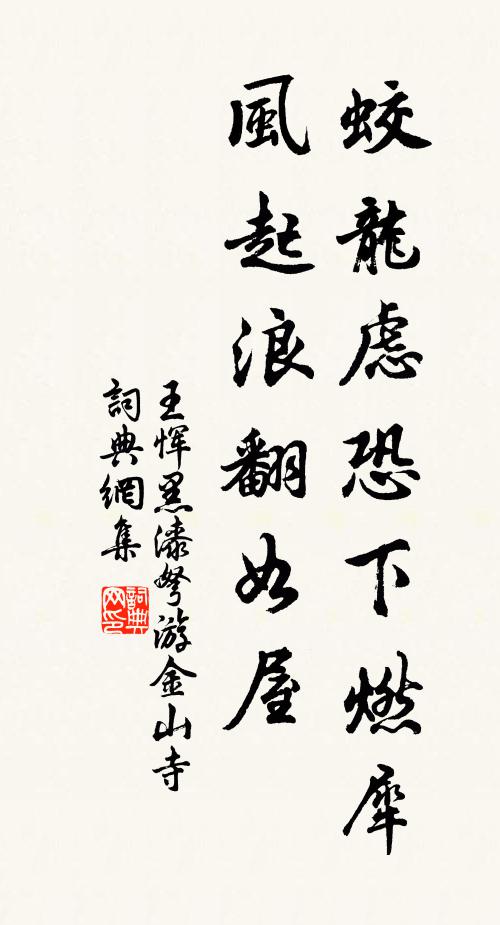 蛟龍慮恐下燃犀
風起浪翻如屋
王惲黑漆弩游金山寺
詞典網集
詞典网印